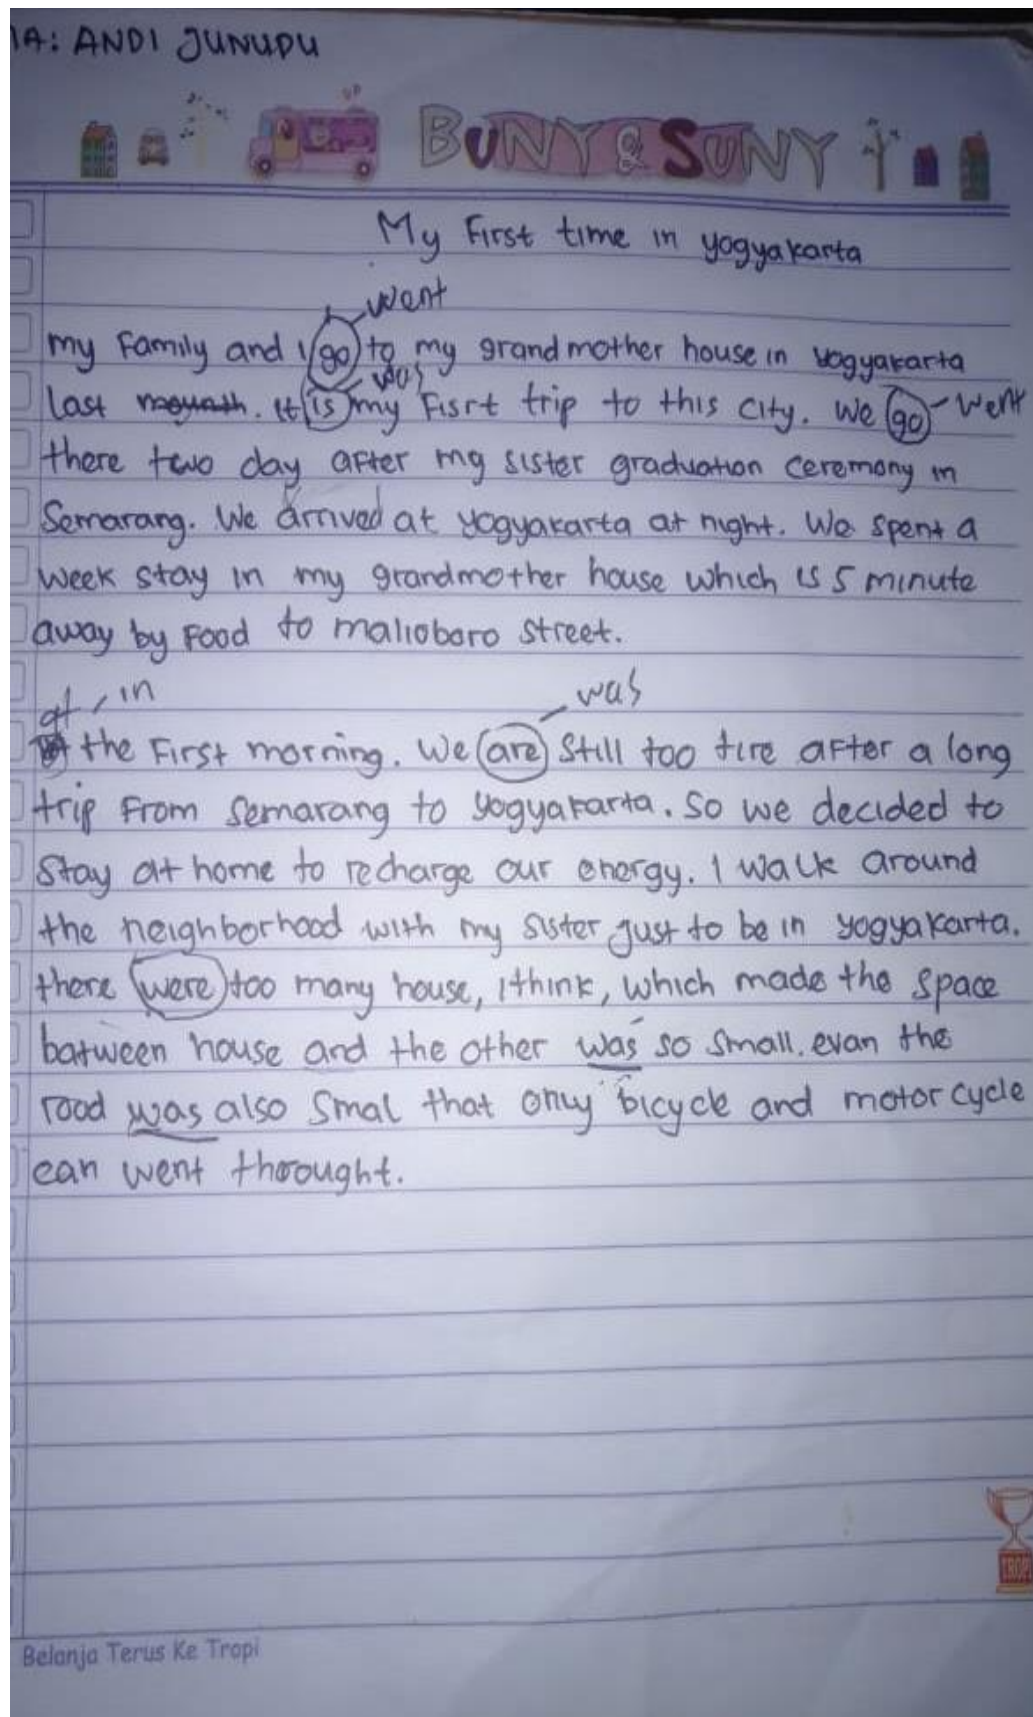 IA: ANDI JUNUPU
UP
BUNY & SUNY
My First time in yogyakarta
went
my Family and I go to my grandmother house in yogyakarta
was
Last mounth. It is my Fisrt trip to this city. We go went
there two day after my sister graduation ceremony in
Semarang. We arrived at yogyakarta at night. We spent a
week stay in my grandmother house which is 5 minute
away by Food to malioboro street.
at in was
the First morning. We are still too tire after a long
trip From semarang to yogyakarta. So we decided to
stay at home to recharge our energy. I walk around
the neighborhood with my sister just to be in yogyakarta.
there were too many house, ithink, which made the space
batween house and the other was so small. evan the
road was also smal that only bicycle and motor cycle
can went throught.
TROPI
Belanja Terus Ke Tropi